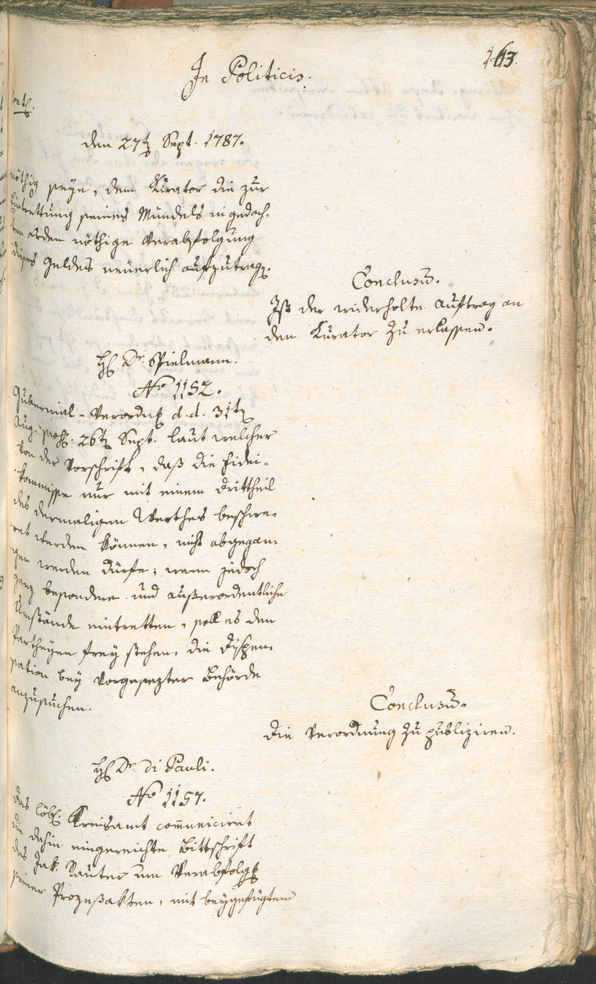 163.
In Politicis.
den 27t Sept. 1787.
nöthig seÿe, dem Kurator die zur
Eintrettung seines Mündels in gedach-
ten Orden nöthige Verabfolgung
dieses Geldes neuerlich aufzutrag.
Conclusū.
Ist der widerholte Auftrag an
den Kurator zu erlassen.
H Dr. Spielmann.
No 1152.
Gubernial-Verordng d.d. 31t
Aug. 26t Sept. laut welcher
von der Vorschrift, daß die Fidei-
Kommisse nur mit einem Drittheil
des dermaligen Werthes beschwe-
ret werden können, nicht abgegan-
gen werden dürfe; wenn jedoch
ganz besondere und außerordentliche
Umstände eintretten, soll es den
Partheÿen freÿ stehen, die Dispen-
sation beÿ vorgesezter Behörde
anzusuchen.
Conclusū.
Die Verordnung zu publiziren.
H Dr. di Pauli.
No 1157.
Das löbl. Kreisamt com̄uniciret
die dahin eingereichte Bittschrift
des Jak. Rauter um Verabfolgg
seiner Prozeßakten, mit beÿgefügtem